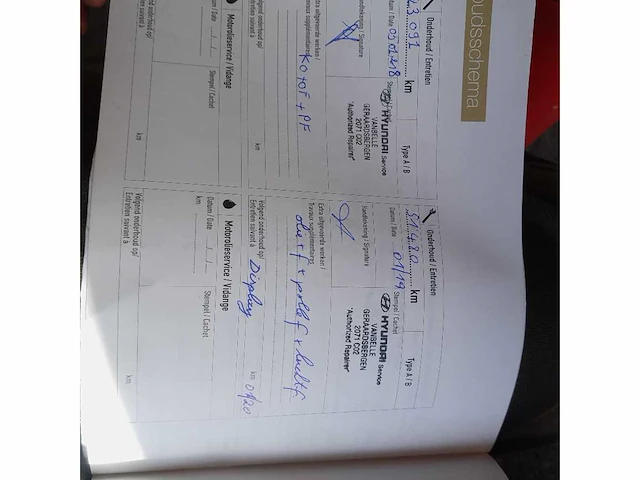 oudsschema
Onderhoud / Entretien
23.092 km
Type A / B
Datum / Date
Stempel / Cachet
HYUNDAI Service
VANBELLE
GERAARDSBERGEN
2071 C02
"Authorized Repairer"
Handtekening / Signature
Extra uitgevoerde werken /
Travaux supplémentaires
+ PF
Volgend onderhoud op/
Entretien suivant à
km
Motorolieservice / Vidange
Datum / Date
Stempel / Cachet
km
Volgend onderhoud op/
Entretien suivant à
km
Onderhoud / Entretien
km
Type A / B
Datum / Date 01/19
Stempel / Cachet
HYUNDAI Service
VANBELLE
GERAARDSBERGEN
2071 C02
"Authorized Repairer"
Handtekening / Signature
Extra uitgevoerde werken /
Travaux supplémentaires
olief + pollf + luchtf
Volgend onderhoud op/
Entretien suivant à
Display
km 01/20
Motorolieservice / Vidange
Datum / Date
Stempel / Cachet
km
Volgend onderhoud op/
Entretien suivant à
km